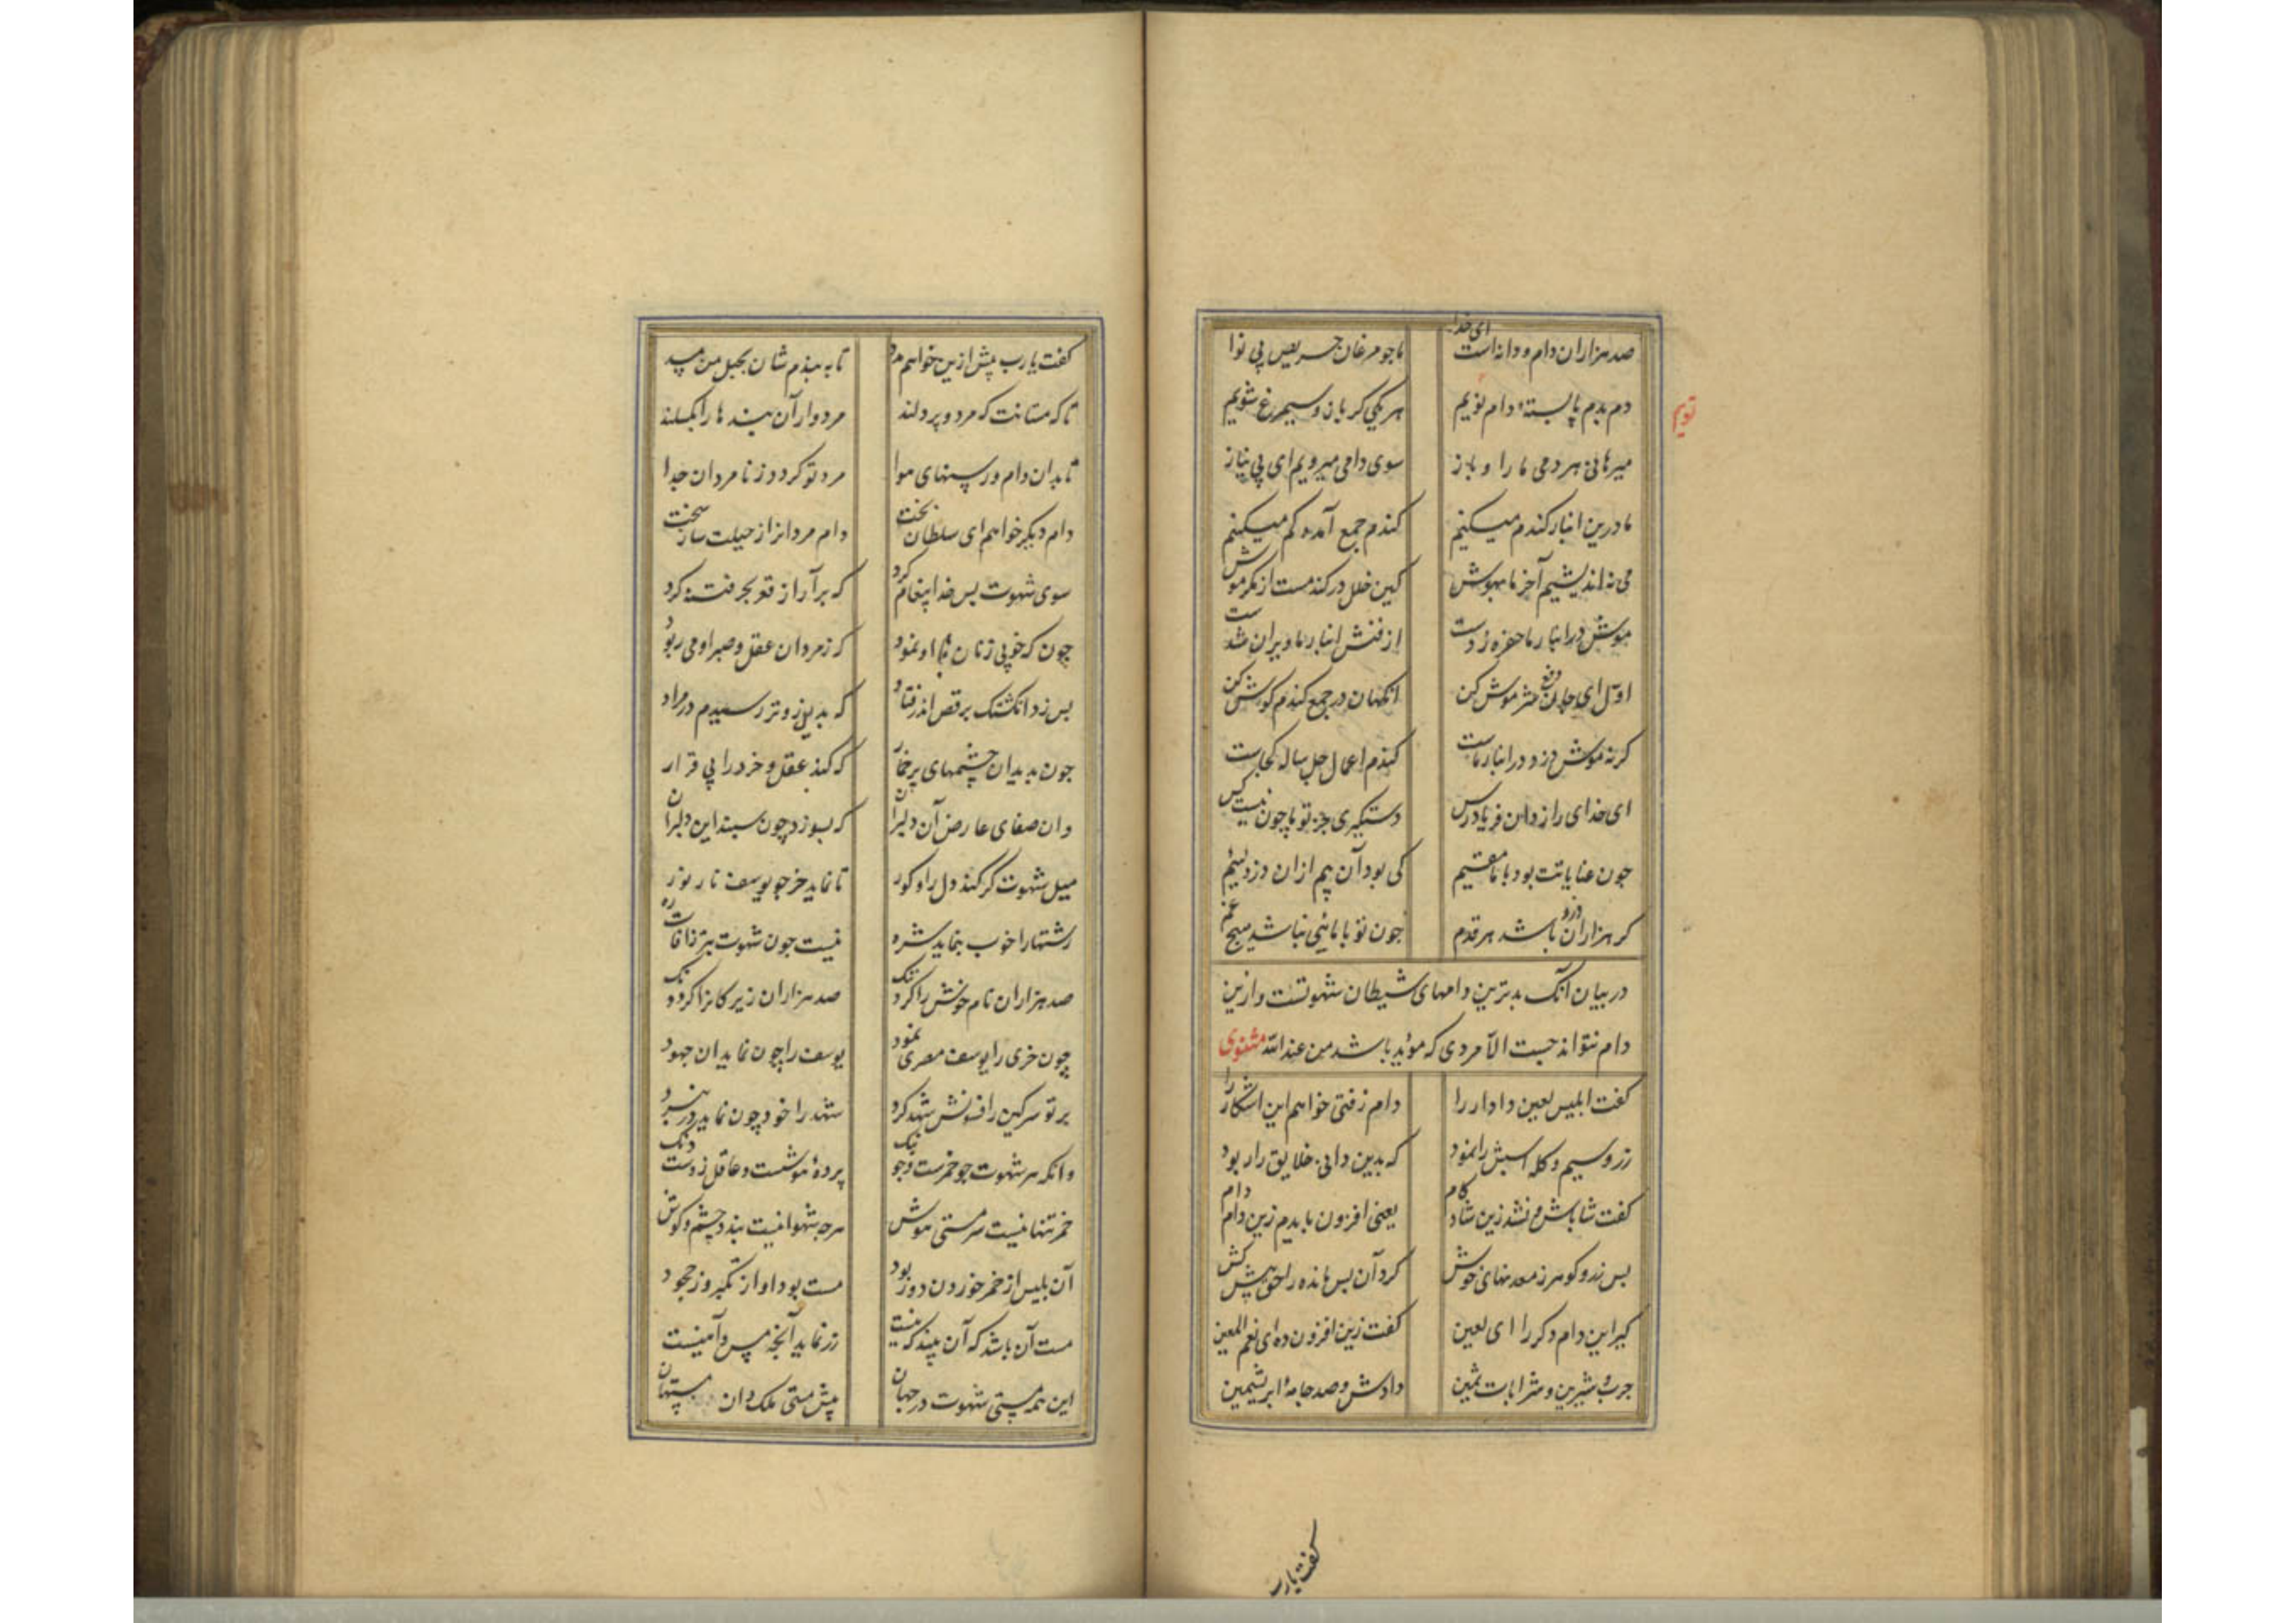 صد هزاران دام و دانه است ای خدا ما چو مرغان حریص بی نوا
دم بدم پابستهٔ دام نویم هر یکی گر باز و سیمرغ شویم
نویم
میرهانی هر دمی ما را و باز سوی دامی میرویم ای بی نیاز
ما درین انبار گندم میکنیم گندم جمع آمده گم میکنیم
می نه اندیشیم آخر ما بهوش کین خلل در گندمست از مکر موش
موش در انبار ما حفره زدست از فنش انبار ما ویران شدست
اول ای جان دفع شر موش کن انگهان در جمع گندم گوش کن
گرنه موش دزد در انبار ماست گندم اعمال چل ساله کجاست
ای خدای رازدان فریادرس دستگیری جز تو ما چون نیست کس
چون عنایاتت بود با ما مقیم کی بود آن بیم از ان دزد لئیم
گر هزاران دام باشد هر قدم چون تو با مائی نباشد هیچ غم
در بیان آنک بدترین دامهای شیطان شهوتست و ازین
دام نتواند جست الا مردی که مؤید باشد من عند الله مثنوی
گفت ابلیس لعین دادار را دام زفتی خواهم این اشکار را
زر و سیم و گله اسبش را نمود که بدین دانی خلایق را ربود
گفت شاباش و نشد زین شاد کام یعنی افزون بایدم زین دام دام
پس زر و گوهر ز معدنهای خوش کرد آن پس مانده را حق پیش کش
گیر این دام دگر را ای لعین گفت زین افزون ده ای نعم المعین
چرب و شیرین و شرابات ثمین دادش و صد جامهٔ ابریشمین
گفت یارب
گفت یارب بیش ازین خواهم مدد تا ببندم شان بحبل من مسد
تا که مستانت که مرد و پر دلند مردوار آن بندها را بگسلند
تا بدان دام و رسنهای هوا مرد تو گردد ز نامردان جدا
دام دیگر خواهم ای سلطان تخت دام مرد انداز حیلت ساز سخت
سوی شهوت پس خدا پیغام کرد که برآر از قعر بحر فتنه گرد
چون که خوبی زنان با او نمود که ز مردان عقل و صبر او می ربود
پس زد انگشتک برقص اندر فتاد که بده زوتر رسیدم در مراد
چون بدید آن چشمهای پر خمار که کند عقل و خرد را بی قرار
وان صفای عارض آن دلبران که بسوزد چون سپند این دل بران
میل شهوت کر کند دل را و کور تا نماید خر چو یوسف نار نور
زشتها را خوب بنماید شره نیست چون شهوت بتر ز آفات ره
صد هزاران نام خوش را کرد ننگ صد هزاران زیرکان را کرده دنگ
چون خری را یوسف مصری نمود یوسف را چون نماید آن جهود
بر تو سرگین را فسونش شهد کرد شهد را خود چون نماید در نبرد
وانکه هر شهوت چو خمرست و چو بنگ پردهٔ هوشست و عاقل زوست دنگ
خمر تنها نیست سرمستی هوش هرچه شهوانیست بندد چشم و گوش
آن بلیس از خمر خوردن دور بود مست بود او از تکبر وز جحود
مست آن باشد که آن بیند که نیست زر نماید آنچه مس و آهنیست
این همه مستی شهوت در جهان پیش مستی ملک دان مستهان